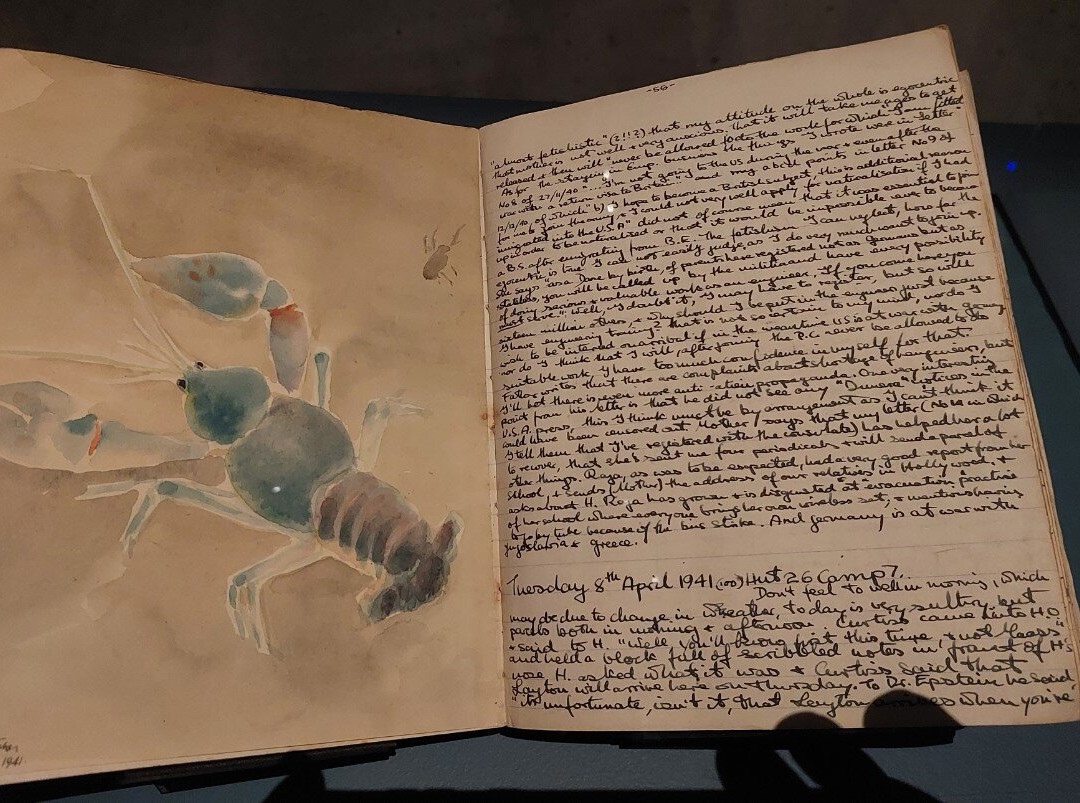 1941.
-56-
"almost fetishistic" (?!!?) that my attitude on the whole is egocentric
that mother is not well & very anxious, that it will take me ages to get
released & there will "never be allowed to do the work for which I am fitted
As for the staying in Eng. business the things I wrote were in letter
No 8 of 27/11/40 "... I'm not going to the US during the war & even after the
war with a return visa to Britain" and may a bill points in letter No 9 of
12/12/40, of which "b) I hope to become a British subject, this is additional reason
for me to join the army & I could not very well apply for naturalisation if I had
immigrated into the U.S.A" did not of course mean that it was essential to join
up in order to be naturalised or that it would be impossible to become
a B.S. after emigrating from B.E. The fetishism I can neglect, how far the
egocentric is true I can not easily judge, as I do very much want to join up.
She says "as a Dane by birth, of parents here registered not as germans but as
stateless, you will be called up by the military and have every possibility
of doing precious & valuable work as an engineer. If you come here you
must serve." Well, I doubt it, I may have to register, but so will
sixteen million others, & why should I be put in the engineers just because
I have engineering training? that is not so certain to my mind, nor do I
wish to be interned on arrival if in the meantime US is at war with germany
nor do I think that I will, after joining the P.C. never be allowed to do
suitable work, I have too much confidence in myself for that.
Father writes that there are complaints about shortage of engineers, but
I'll bet there is even more anti-alien propaganda. One very interesting
point from his letter is that he did not see any "Dunera" notices in the
U.S.A. press, this I think must be by arrangement as I can't think it
could have been censored out. Mother says that my letter (No 14 in which
I tell them that I've registered with the consulate) has helped her a lot
to recover, that she's sent me four periodicals & will send a parcel of
other things. Raja, as was to be expected, had a very good report from her
School, & sends (Mother) the address of our relatives in Hollywood, &
asks about H. Raja has grown & is disgusted at "evacuation practise
of her school where everyone brings her own wireless set, & mentions having
to go by tube because of the bus strike. And germany is at war with
Jugoslavia & Greece.
Tuesday 8th April 1941 (100) Hut 26 Camp 7.
Don't feel to well in morning, which
may be due to change in weather, today is very sultry, but
packs both in morning & afternoon. Curtiss came into H.O.
& said to H. "Well, you'll be going first this time & not Maass"
and held a block full of scribbled notes in front of H's
nose. H. asked what it was & Curtiss said that
Layton will arrive here on Thursday. To Dr. Epstein he said
"its unfortunate, isn't it, that Layton arrives when you're